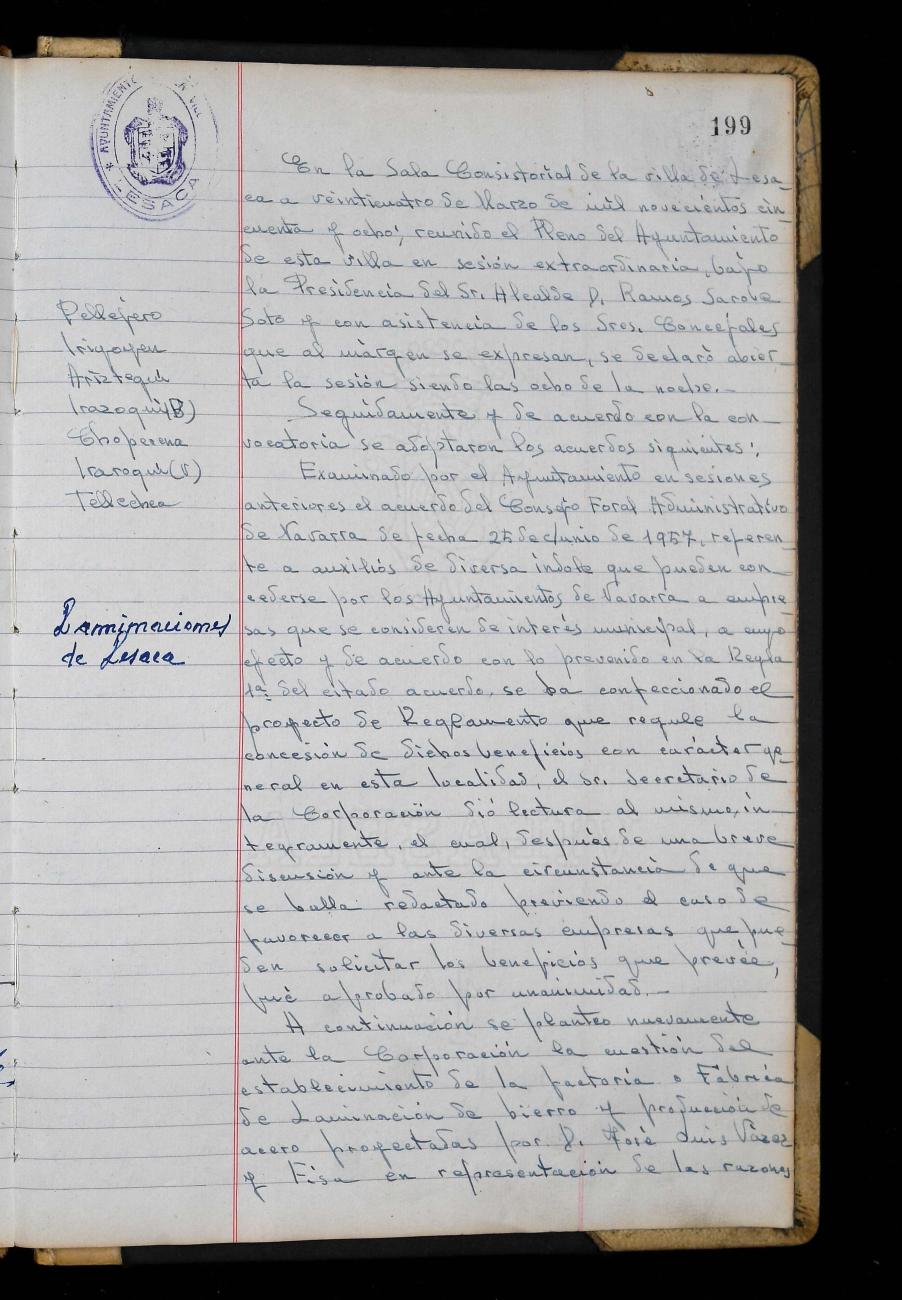 199
AYUNTAMIENTO
LESACA
Pellejero
Irigoyen
Ariztegui
Irazoqui(B)
Choperena
Irazoqui(V)
Tellechea
Laminaciones
de Lesaca
En la Sala Consistorial de la villa de Lesa-
ca a veinticuatro de Marzo de mil novecientos cin-
cuenta y ocho; reunido el Pleno del Ayuntamiento
de esta villa en sesión extraordinaria, bajo
la Presidencia del Sr. Alcalde D. Ramos Sarobe
Soto y con asistencia de los Sres. Concejales
que al márgen se expresan, se declaró abier-
ta la sesión siendo las ocho de la noche.-
Seguidamente y de acuerdo con la con-
vocatoria se adoptaron los acuerdos siguientes:
Examinado por el Ayuntamiento en sesiones
anteriores el acuerdo del Consejo Foral Administrativo
de Navarra de fecha 25 de Junio de 1957, referen-
te a auxilios de diversa índole que pueden con-
cederse por los Ayuntamientos de Navarra a empre-
sas que se consideren de interés municipal, a cuyo
efecto y de acuerdo con lo prevenido en la Regla
1ª del citado acuerdo, se ha confeccionado el
proyecto de Reglamento que regule la
concesión de dichos beneficios con carácter ge-
neral en esta localidad, el Sr. Secretario de
la Corporación dió lectura al mismo, in-
tegramente, el cual, después de una breve
discusión y ante la circunstancia de que
se halla redactado previendo el caso de
favorecer a las diversas empresas que pue-
den solicitar los beneficios que prevée,
fué aprobado por unanimidad.-
A continuación se planteo nuevamente
ante la Corporación la cuestión del
establecimiento de la factoría o Fabrica
de Laminación de hierro y producción de
acero proyectadas por D. José Luis
y Fisa en representación de las razones